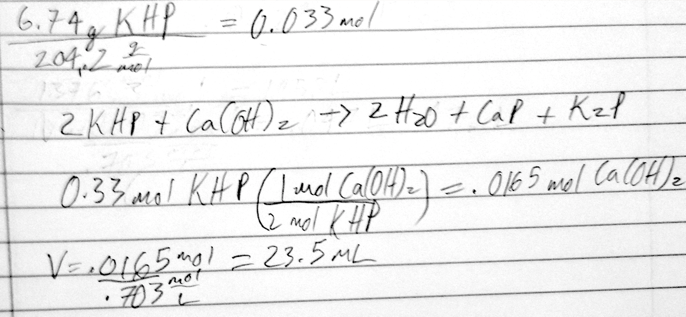 6.74g KHP / 204.2 g/mol = 0.033 mol
2KHP + Ca(OH)₂ → 2H₂O + CaP + K₂P
0.33 mol KHP (1 mol Ca(OH)₂ / 2 mol KHP) = .0165 mol Ca(OH)₂
V = .0165 mol / .703 mol/L = 23.5 mL